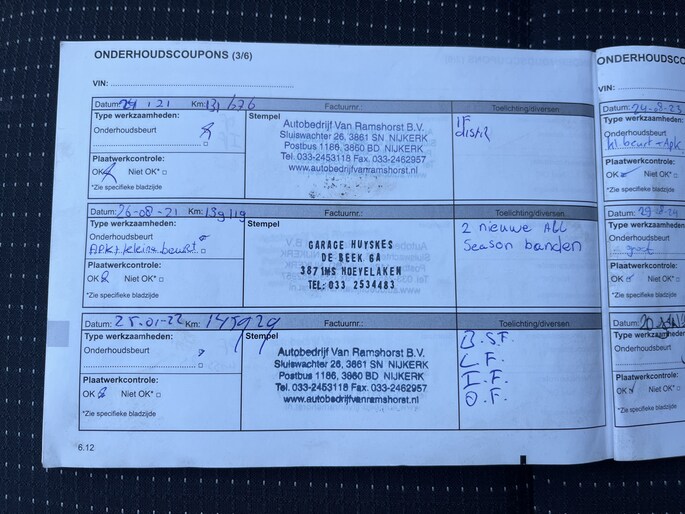 ONDERHOUDSCOUPONS (3/6)
VIN:
Datum: 21 Km: 131676 Factuurnr.: Toelichting/diversen
Type werkzaamheden:
Onderhoudsbeurt
Stempel
Autobedrijf Van Ramshorst B.V.
Sluiswachter 26, 3861 SN NIJKERK
Postbus 1186, 3860 BD NIJKERK
Tel. 033-2453118 Fax. 033-2462957
www.autobedrijfvanramshorst.nl
IF
distr
Plaatwerkcontrole:
OK Niet OK*
*Zie specifieke bladzijde
Datum: 26-08-21 Km: 139119 Factuurnr.: Toelichting/diversen
Type werkzaamheden:
Onderhoudsbeurt
APK + kleine beurt
Stempel
GARAGE HUYSKES
DE BEEK 6A
3871MS HOEVELAKEN
TEL: 033 2534483
2 nieuwe All
Season banden
Plaatwerkcontrole:
OK Niet OK*
*Zie specifieke bladzijde
Datum: 25-01-22 Km: 145929 Factuurnr.: Toelichting/diversen
Type werkzaamheden:
Onderhoudsbeurt
Stempel
Autobedrijf Van Ramshorst B.V.
Sluiswachter 26, 3861 SN NIJKERK
Postbus 1186, 3860 BD NIJKERK
Tel. 033-2453118 Fax. 033-2462957
www.autobedrijfvanramshorst.nl
B.SF.
L.F.
I.F.
O.F.
Plaatwerkcontrole:
OK Niet OK*
*Zie specifieke bladzijde
6.12
ONDERHOUDSCO
VIN:
Datum: 24-08-23
Type werkzaamheden:
Onderhoudsbeurt
kl beurt + Apk
Plaatwerkcontrole:
OK Niet OK*
*Zie specifieke bladzijde
Datum: 29-08-24
Type werkzaamheden:
Onderhoudsbeurt
groot
Plaatwerkcontrole:
OK Niet OK*
*Zie specifieke bladzijde
Datum:
Type werkzaamheden:
Onderhoudsbeurt
Plaatwerkcontrole:
OK Niet OK*
*Zie specifieke bladzijde